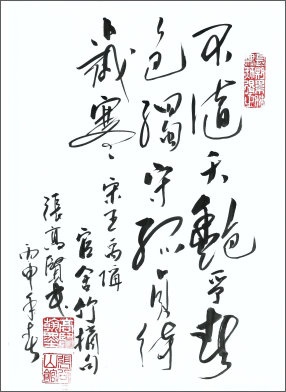 不隨夭艷爭春
色獨守孤貞待
歲寒 宋王禹偁
官舍竹摘句
張高賢書
丙申年春